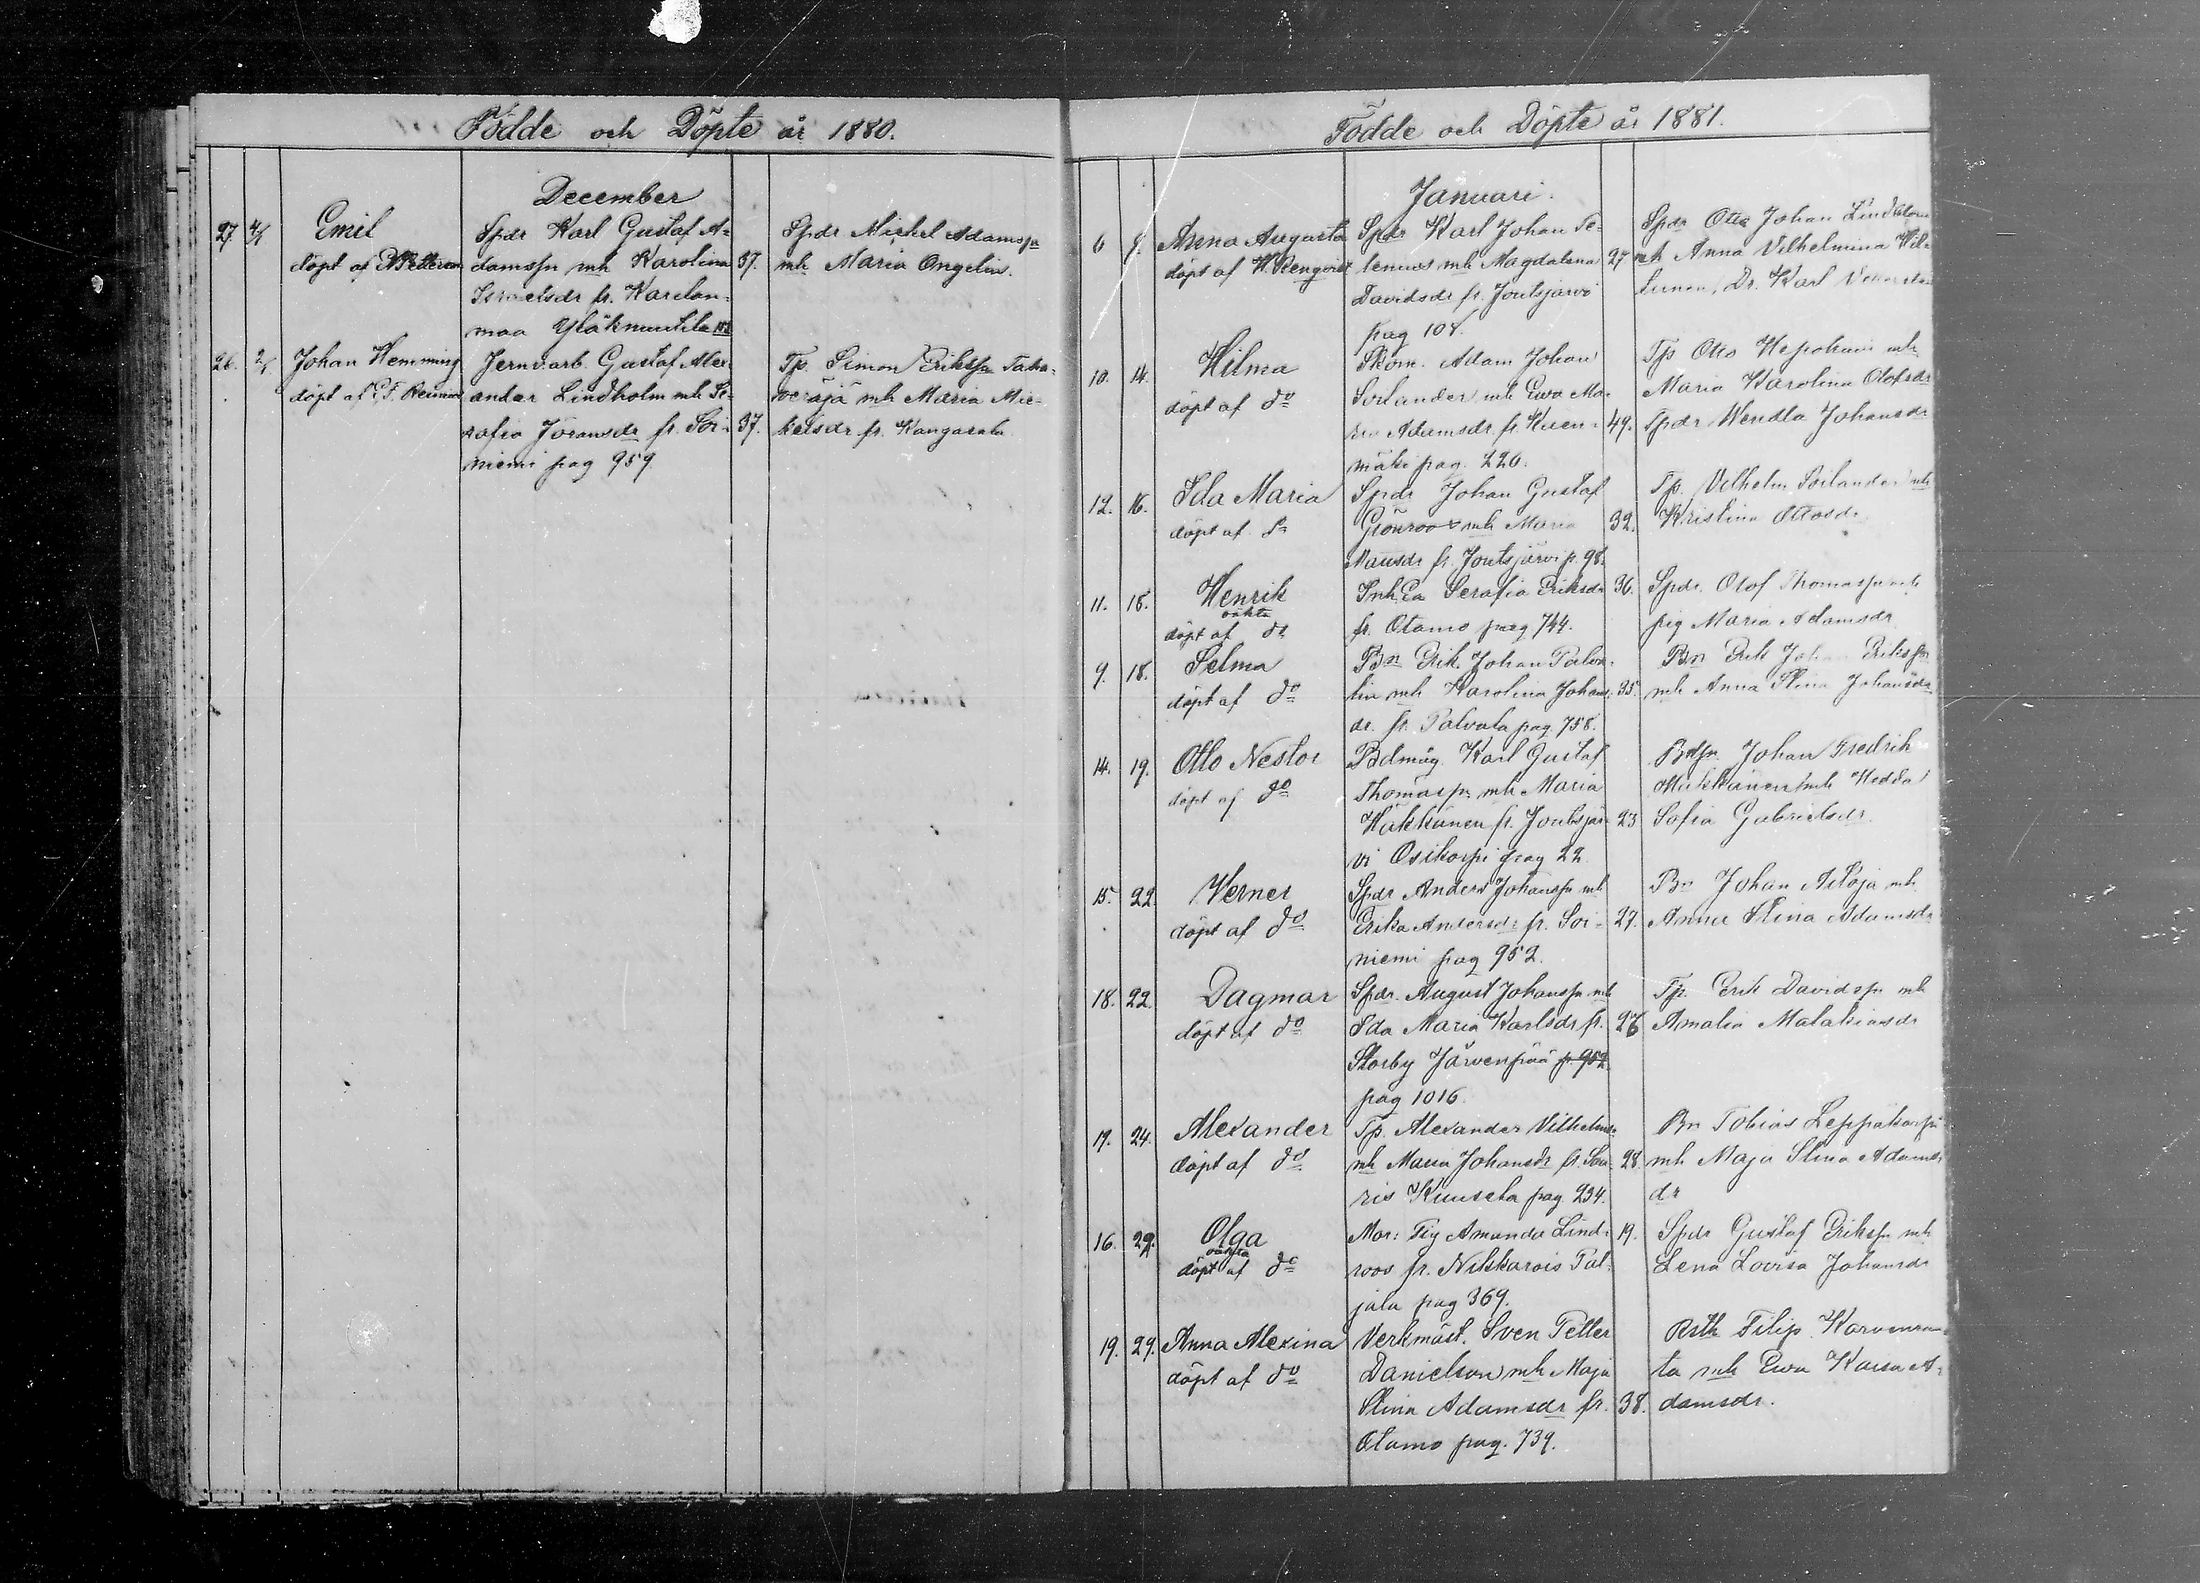 Födde och Döpte år 1880.
December
27. 4/1 Emil
döpt af
Spdr Karl Gustaf A=
damsfn mh Karolina
Israelsdr fr. Karilan=
maa Yläknuutila
37.
Spdr Michel Adamsfn
mh Maria Ongelin.
26. 2/1 Johan Hemming
döpt af
Jernv.arb. Gustaf Alex=
ander Lindholm mh Se=
rafia Jöransdr fr. Soi=
niemi pag 959.
37.
Tp. Simon Eriksfn Taka=
veräjä mh Maria Mic=
kelsdr fr. Kangasala
Födde och Döpte år 1881.
Januari.
6 9. Anna Augusta
döpt af W. Renqvist
Spdr Karl Johan Te=
lenius mh Magdalena
Davidsdr fr. Joutsjärvi
pag 108.
27
Spdr Otto Johan Lindstöm
mh Anna Vilhelmina Wil=
Dr. Karl
10. 14. Hilma
döpt af do
Skom. Adam Johan
Sorlander mh Ewa Ma=
ria Adamsdr fr. Kuen=
mäki pag. 220.
49.
Tp Otto Hepohari mh
Maria Karolina Olofsdr
Tpdr Wendla Johansdr
12. 16. Ida Maria
döpt af do
Spdr Johan Gustaf
Grönroos mh Maria
Mausdr fr. Joutsjärvi p. 98.
32.
Tp. Vilhelm Soilander mh
Kristina Ottosdr
11. 18. Henrik
oäkta
döpt af do
Inh. Ea Serafia Eriksdr
fr. Otamo pag 744.
36.
Spdr. Olof Thomasfn mh
pig Maria Adamsdr
9. 18. Selma
döpt af do
Bn Erik Johan Palva=
lin mh Karolina Johans
dr. fr. Palvala pag. 758.
35.
Bn Erik Johan Eriksfn
mh Anna Stina Johansdr
14. 19. Otto Nestor
döpt af do
Bdmåg. Karl Gustaf
Thomasfn mh Maria
Häkkänen fr. Joutsjär=
vi Osikorpi pag 22.
23
Bdfn Johan Fredrik
Mikkänen mh Hedda
Sofia Gabrielsdr.
15. 22. Verner
döpt af do
Spdr Anders Johansfn mh
Erika Andersdr fr. Soi=
niemi pag 952.
27.
Bn Johan Asoja mh
Anna Stina Adamsdr
18. 22. Dagmar
döpt af do
Spdr. August Johansfn mh
Ida Maria Karlsdr fr.
Storby Järvenpää p. 952
pag 1016.
26
Tp. Erik Davidsfn mh
Amalia Malakiasdr
19. 24. Alexander
döpt af do
Tp. Alexander Vilhelms=
mh Maria Johansdr fr. Sou=
ris Kuusela pag. 234.
28.
Bn Tobias Leppäkorpi
mh Maja Stina Adams
dr
16. 29. Olga
oäkta
döpt af do
Mor: Pig Amanda Lind=
roos fr. Nikkarois Pal=
jala pag 369.
19.
Spdr Gustaf Eriksfn mh
Lena Lovisa Johansdr
19. 29. Anna Alexina
döpt af do
Verkmäst. Sven Petter
Danielson mh Maja
Stina Adamsdr fr.
Otamo pag. 739.
38.
Rsth Filip Karvenran=
ta mh Ewa Kaisa A=
damsdr.